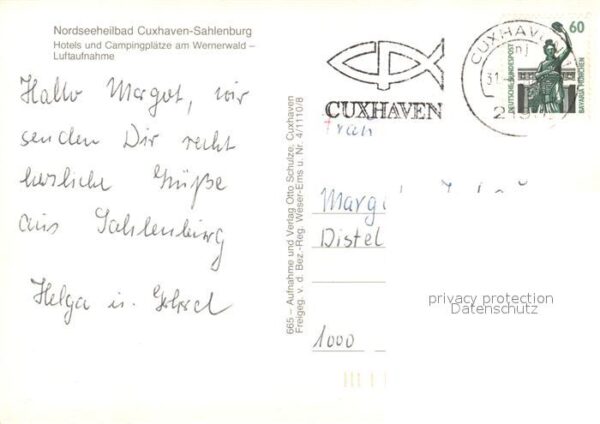 Nordseeheilbad Cuxhaven-Sahlenburg
Hotels und Campingplätze am Wernerwald –
Luftaufnahme
Hallo Margot, wir
senden Dir recht
herzliche Grüße
aus Sahlenburg
Helga u.
665 – Aufnahme und Verlag Otto Schulze, Cuxhaven
Freigeg. v. d. Bez.-Reg. Weser-Ems u. Nr. 4/1110/8
CUXHAVEN
CUXHAVEN
60
DEUTSCHE BUNDESPOST
BAVARIA MÜNCHEN
Frau
Margot
Distel
1000
privacy protection
Datenschutz